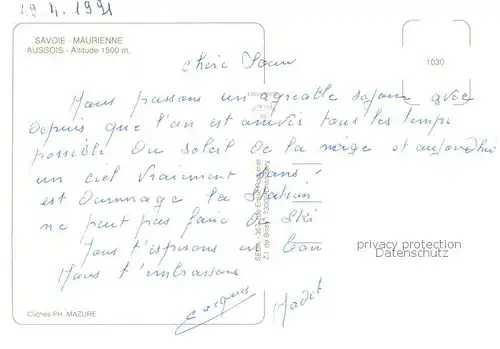 29.4.1991
SAVOIE - MAURIENNE
AUSSOIS - Altitude 1500 m.
1030
chère Soeur
Nous passons un agréable séjour avec
Depuis que l'on est arrivés tous les temps
possible Du soleil De la neige et aujourd'hui
un ciel vraiment sans
est Dommage la Station
ne peut pas faire De Ski
Nous t'espérons en bon
Nous t'embrassons
Jacques
privacy protection
Datenschutz
Clichés PH. MAZURE